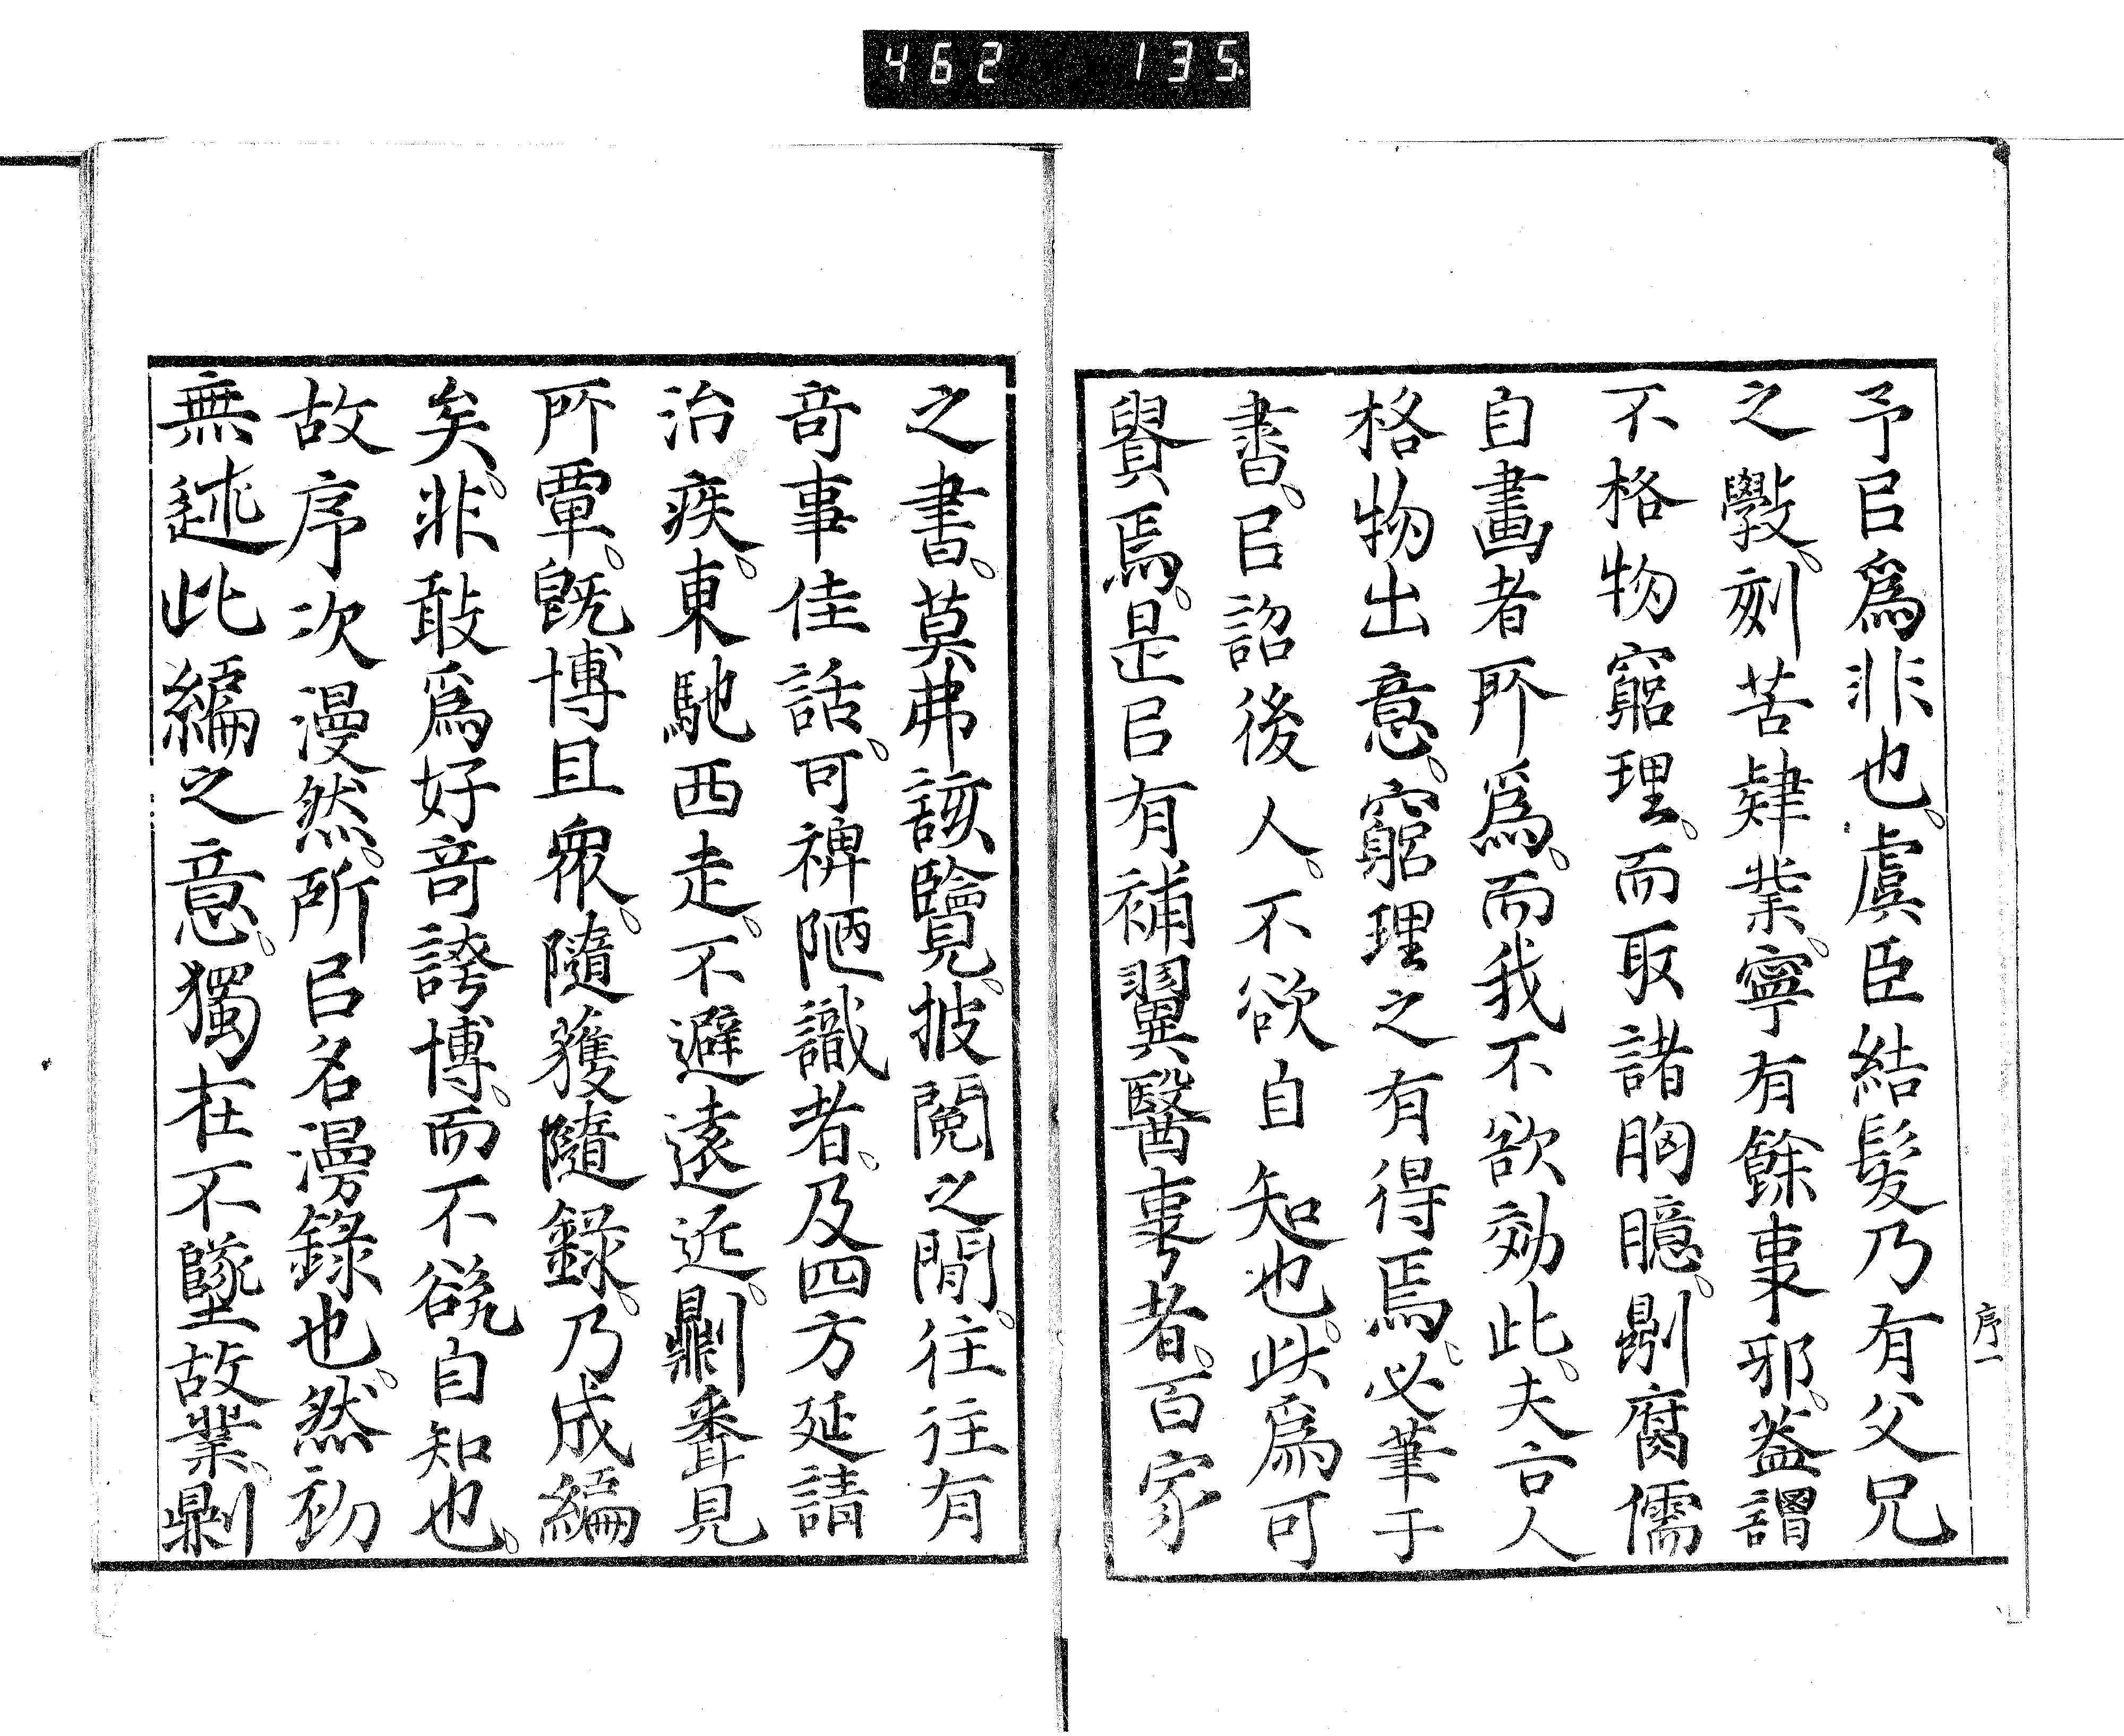 462 135
予㠯爲非也。虞臣結髮乃有父兄
之斅。刻苦肄業。寧有餘事邪。蓋謂
不格物窮理。而取諸胸臆。劓腐儒
自畫者所爲。而我不欲効此。夫言人
格物出意。窮理之有得焉。必筆于
書。㠯詔後人。不欲自知也。此爲可
貴焉。是㠯有補翼醫事者。百家
序一
之書。莫弗該覽。披閱之間。往往有
奇事佳話。可裨陋識者。及四方延請
治疾。東馳西走。不避遠近。劓聋見
所覃。既博且衆。隨獲隨録。乃成編
矣。非敢爲好奇誇博。而不欲自知也。
故序次漫然。所㠯名漫錄也。然初
無述此編之意。獨在不墜故業。劓